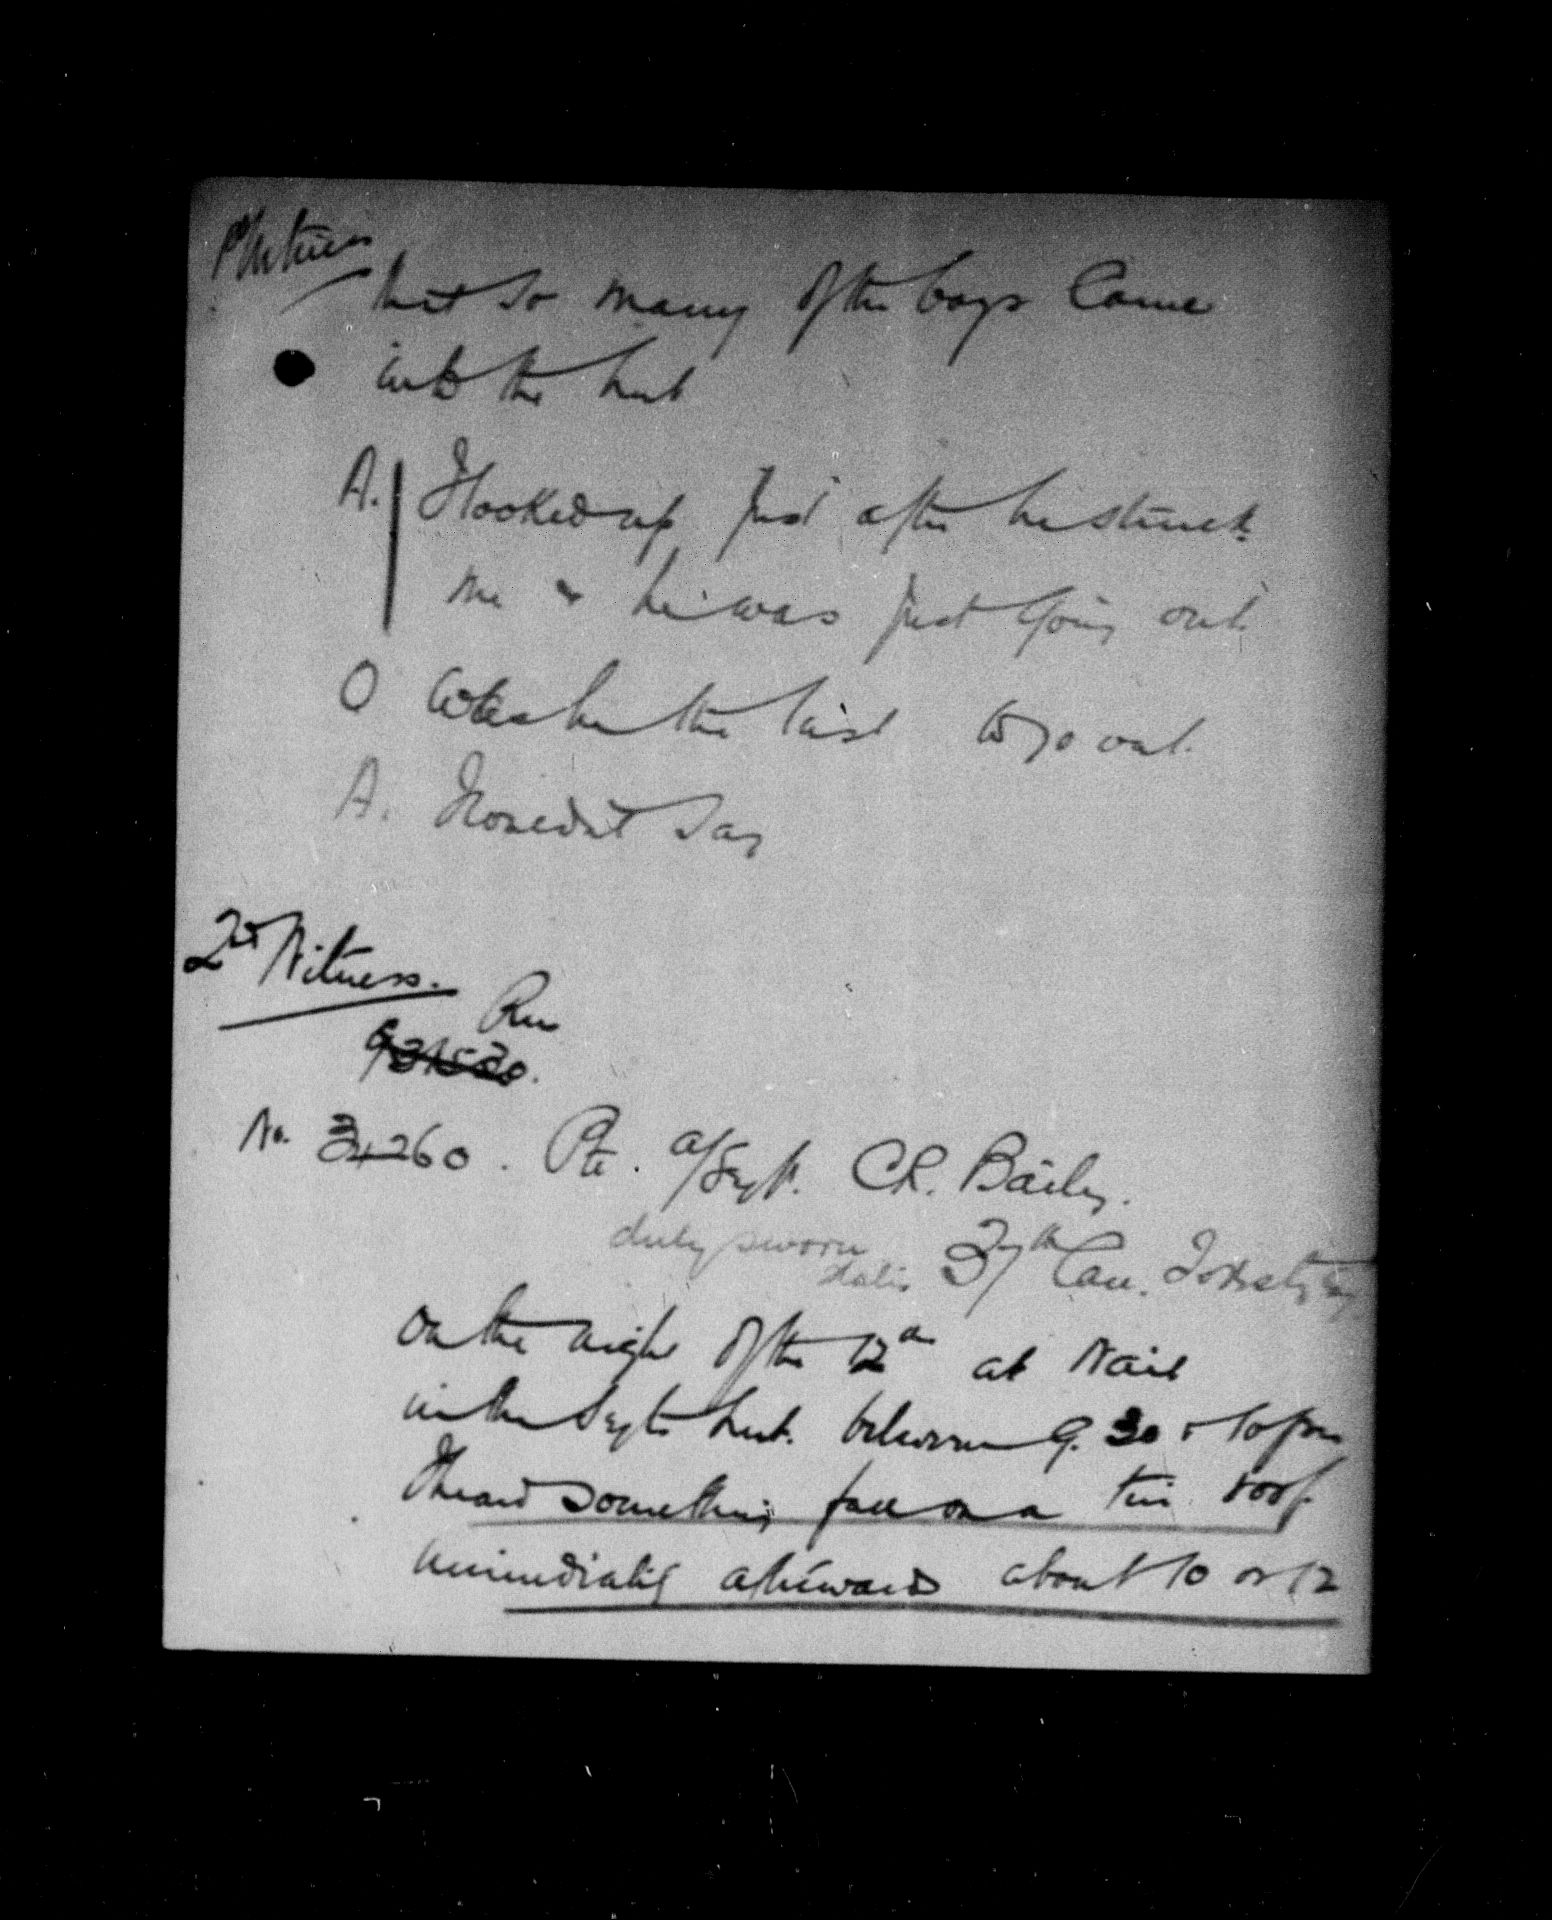 1st Witness
that so many of the boys came
into the hut
A. I looked up just after he struck
me & he was just going out.
Q Was he the last to go out.
A. I couldn't say
2nd Witness.
931530.
No. 34260. Pte. a/Sergt. C.R. Bailey.
duly sworn
states 37th Can. Forestry Coy
on the night of the 12th at
in the Sergts hut. between 9.30 & 10 pm
I heard something fall on a tin roof
immediately afterwards about 10 or 12